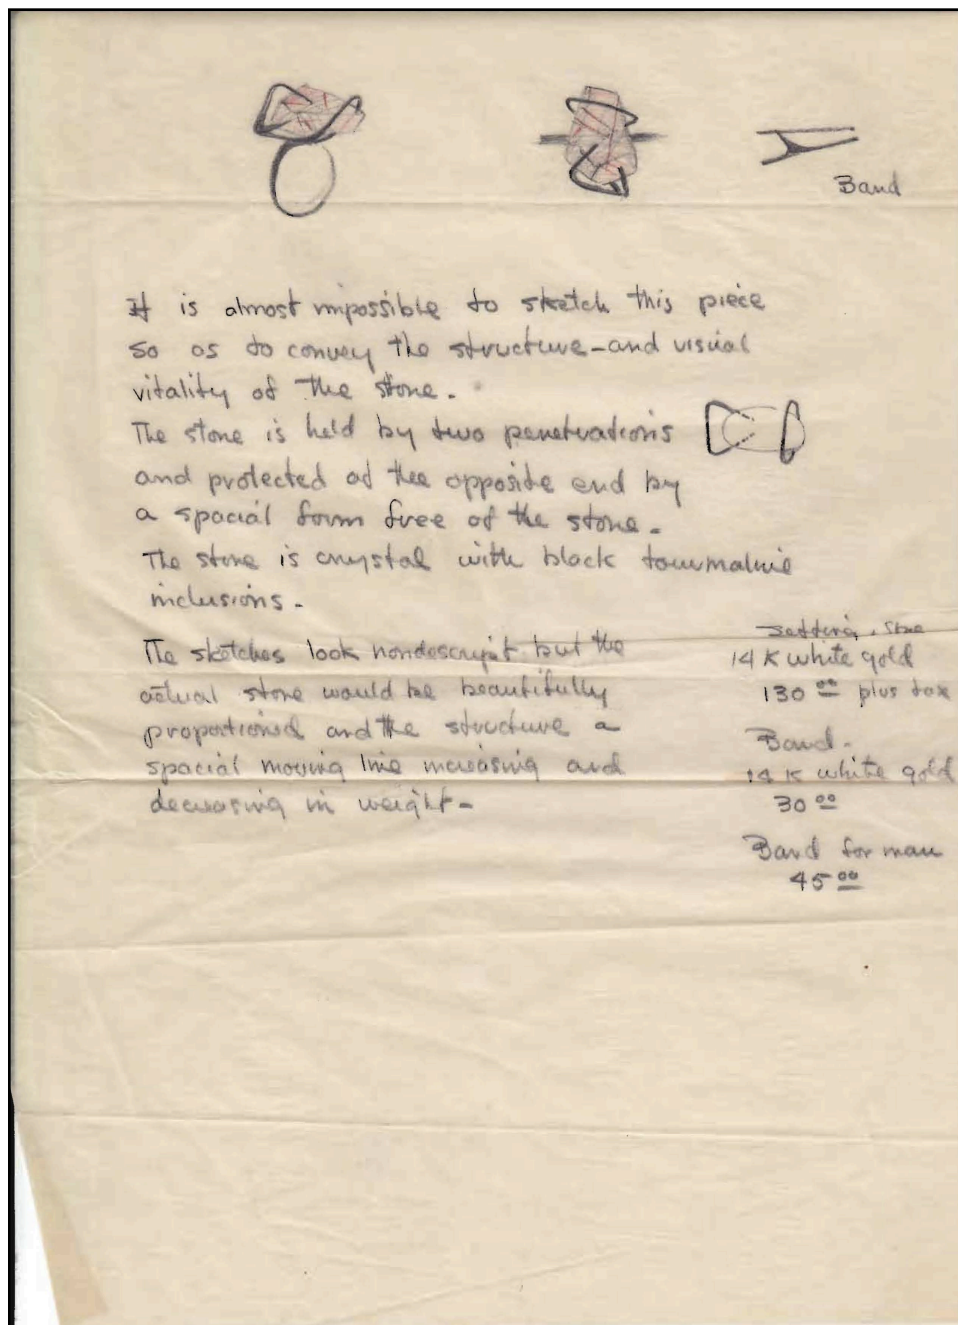 Band
It is almost impossible to sketch this piece
so as to convey the structure-and visual
vitality of the stone.
The stone is held by two penetrations
and protected at the opposite end by
a spacial form free of the stone.
The stone is crystal with black tourmaline
inclusions.
The sketches look nondescript but the
actual stone would be beautifully
proportioned and the structure a
spacial moving line increasing and
decreasing in weight-
setting, stone
14 K white gold
130 00 plus tax
Band.
14 K white gold
30 00
Band for man
45 00